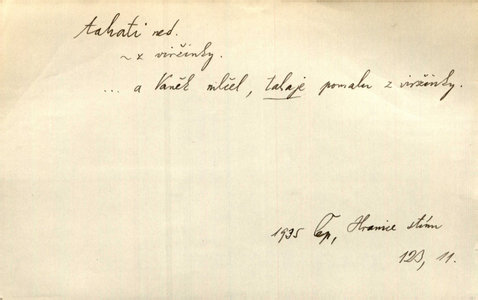 tahati ned.
~ z viržinky.
... a Vaněk mlčel, tahaje pomalu z viržinky.
1935 Čep, Hranice stínu
123, 11.